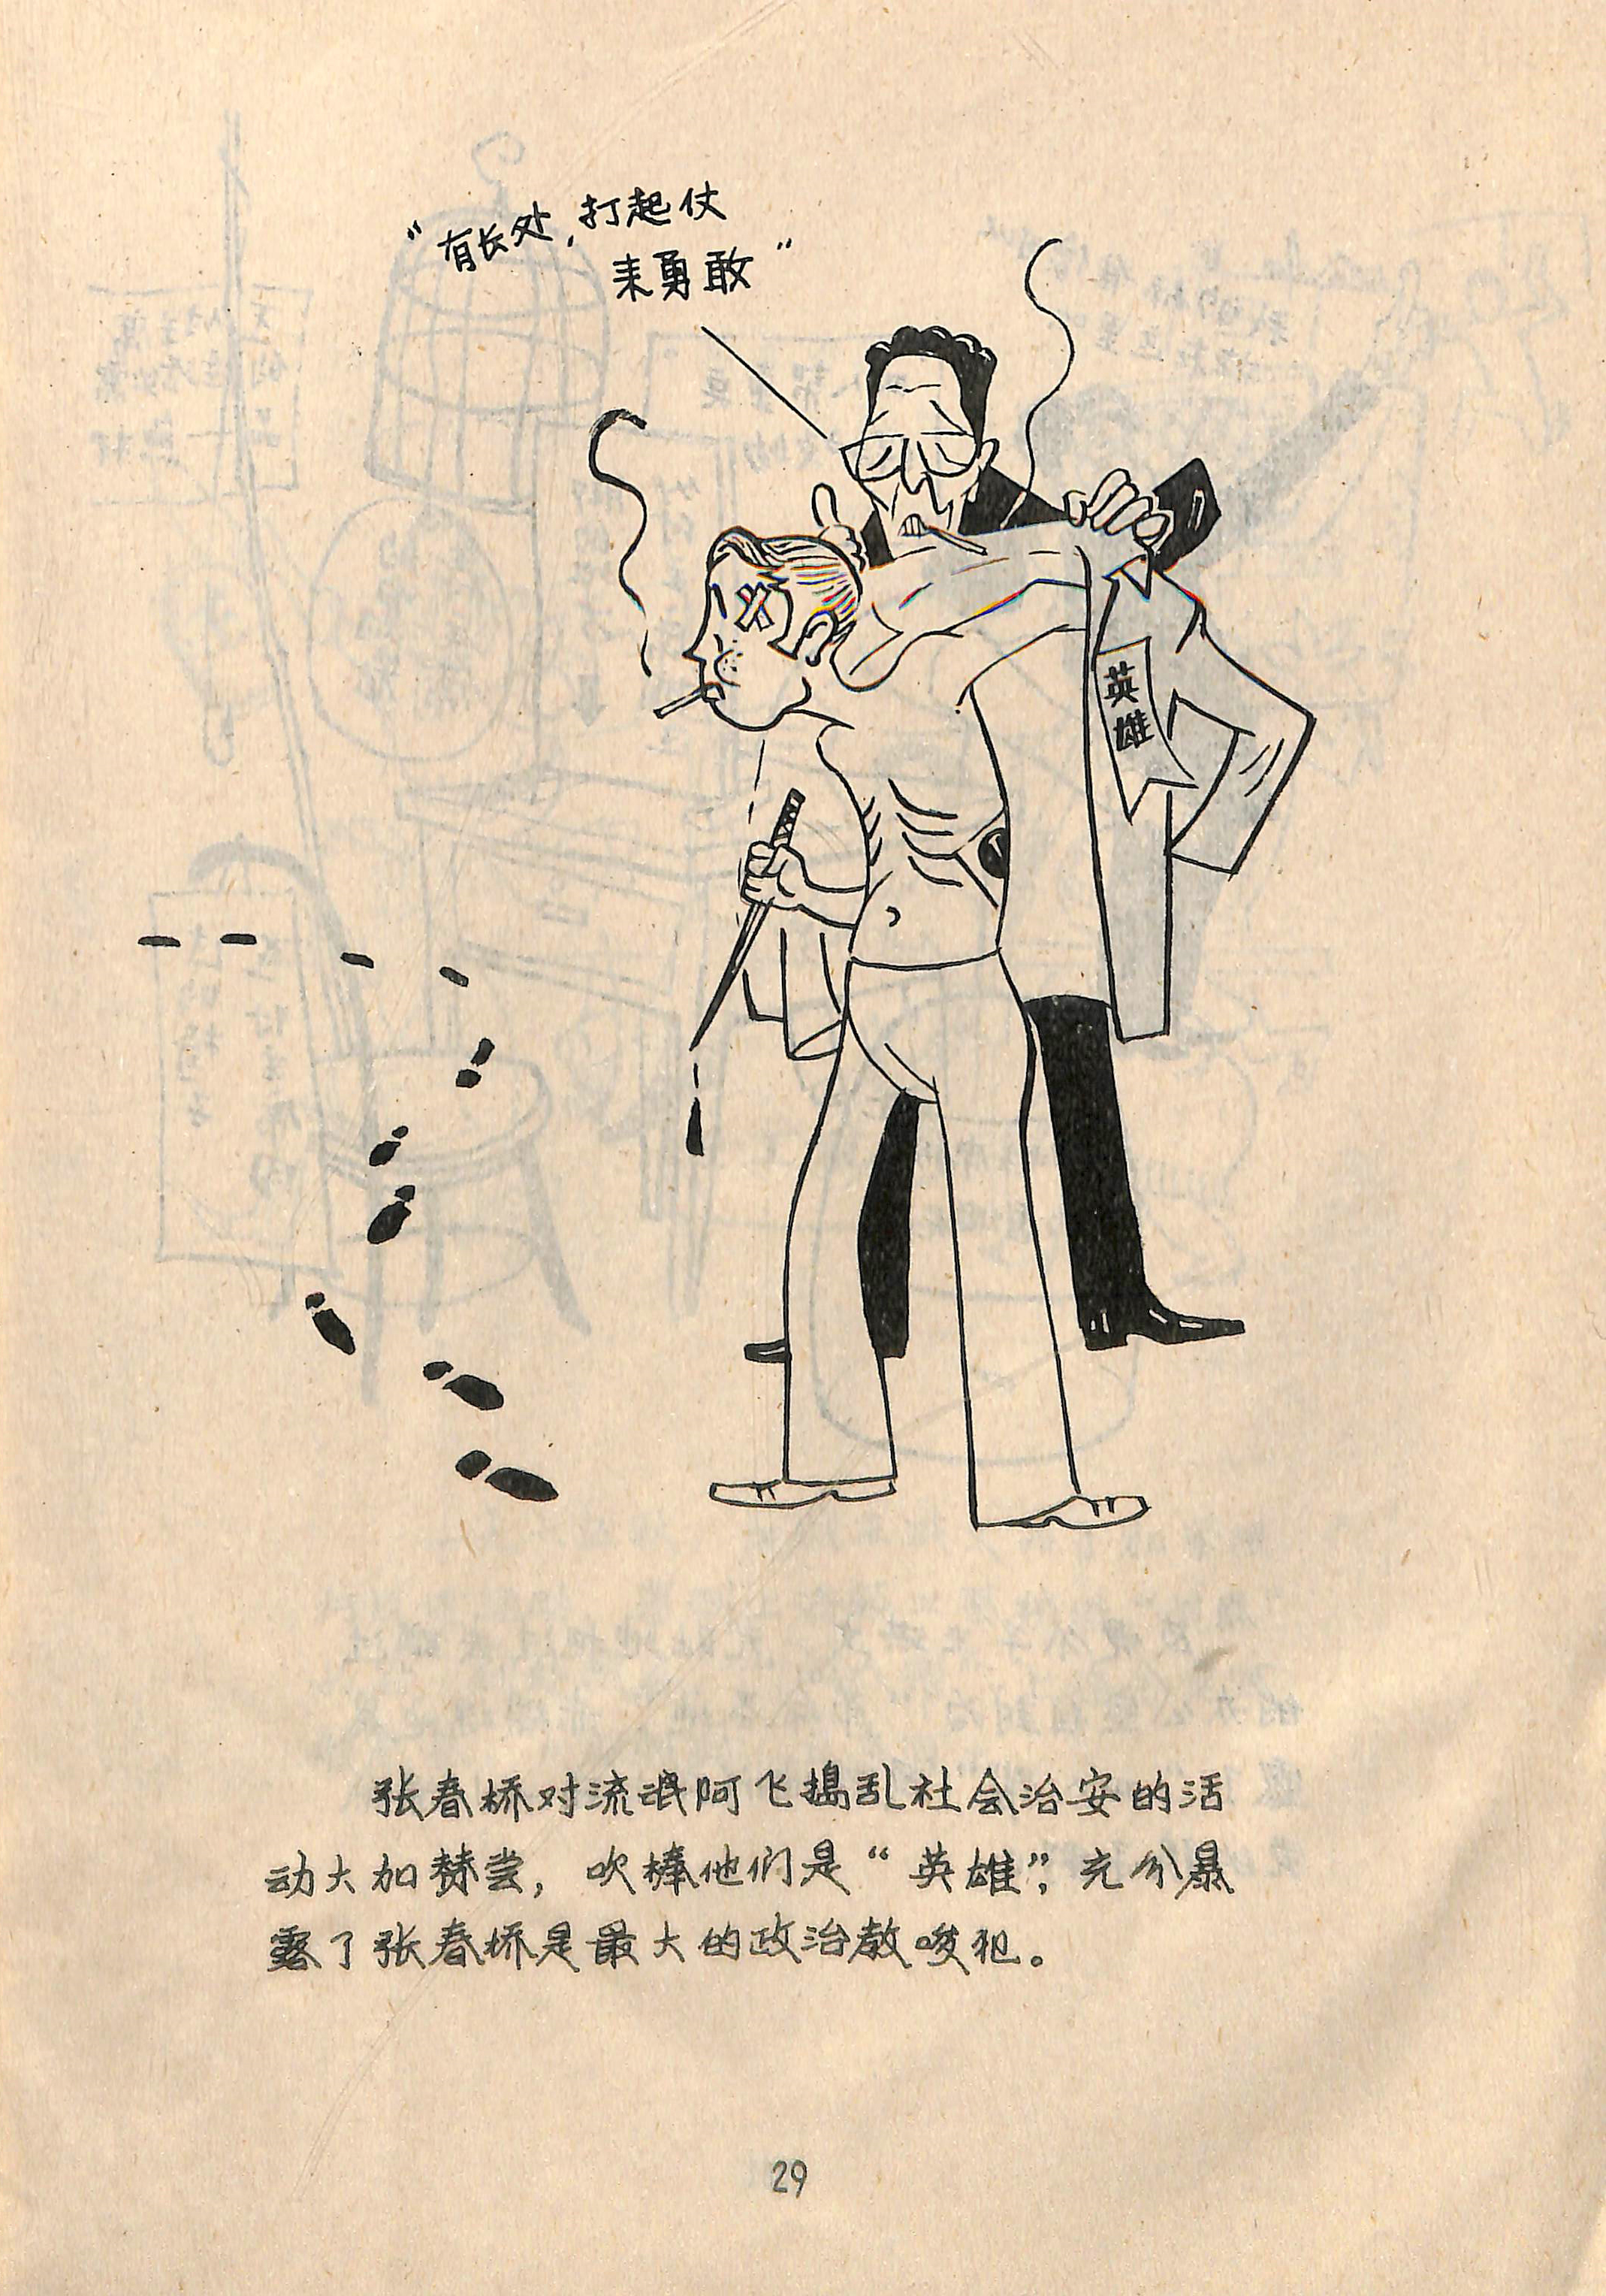 “有长处，打起仗
来勇敢”
英
雄
张春桥对流氓阿飞捣乱社会治安的活
动大加赞尝，吹棒他们是“英雄”，充分暴
露了张春桥是最大的政治教唆犯。
29